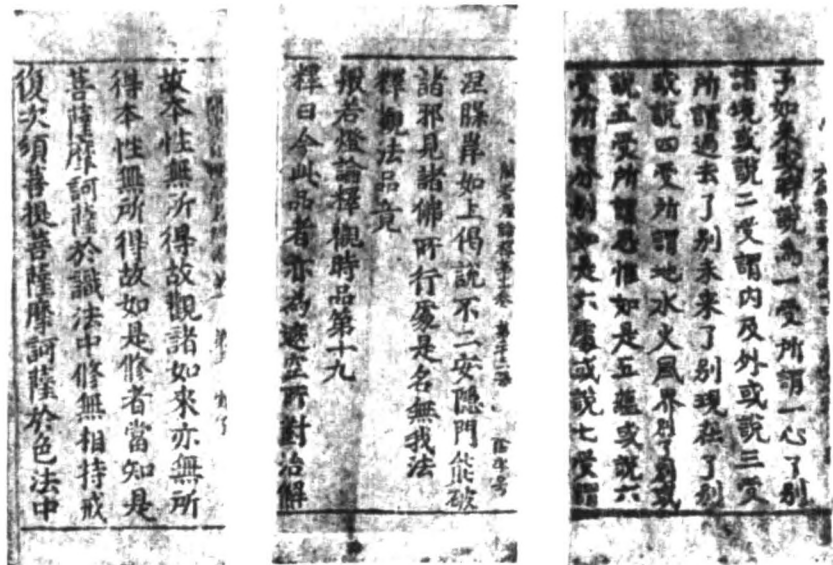 子如来或時說為一受所謂一心了别
諸境或說二受謂内及外或說三受
所謂過去了别未来了别現在了别
或說四受所謂地水火風界別了别或
說五受所謂思惟如是五蘊或說六
受所謂分别如是六處或說七受謂
涅槃岸如上偈說不二安隱門能破
諸邪見諸佛所行處是名無我法
釋觀法品竟
般若燈論釋觀時品第十九
釋曰今此品者亦為遮空所對治解
故本性無所得故觀諸如來亦無所
得本性無所得故如是修者當知是
菩薩摩訶薩於識法中修無相持戒
復次須菩提菩薩摩訶薩於色法中